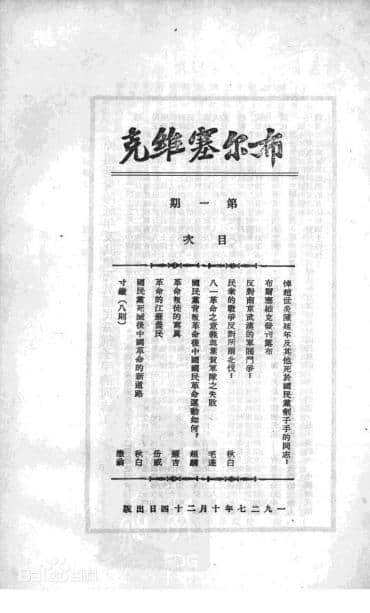 布尔塞維克
第一期
目次
悼趙世炎陳延年及其他死於國民黨劊子手的同志!
布爾塞維克發刊露布
反對南京武漢的軍閥鬥爭!
民衆的戰爭反對所謂北伐! 秋白
八一革命之意義與葉賀軍隊之失敗 毛達
國民黨背叛革命後中國國民革命運動如何? 超麟
革命叛徒的寫真
革命的江蘇農民
國民黨死滅後中國革命的新道路 秋白
寸鐵(八則) 撒翁
一九二七年十月二十四日出版
Baidu百科